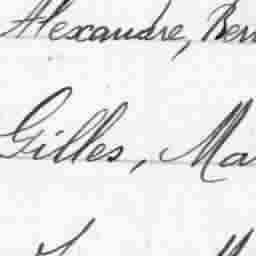 Alexandre, Ber
Gilles, Ma